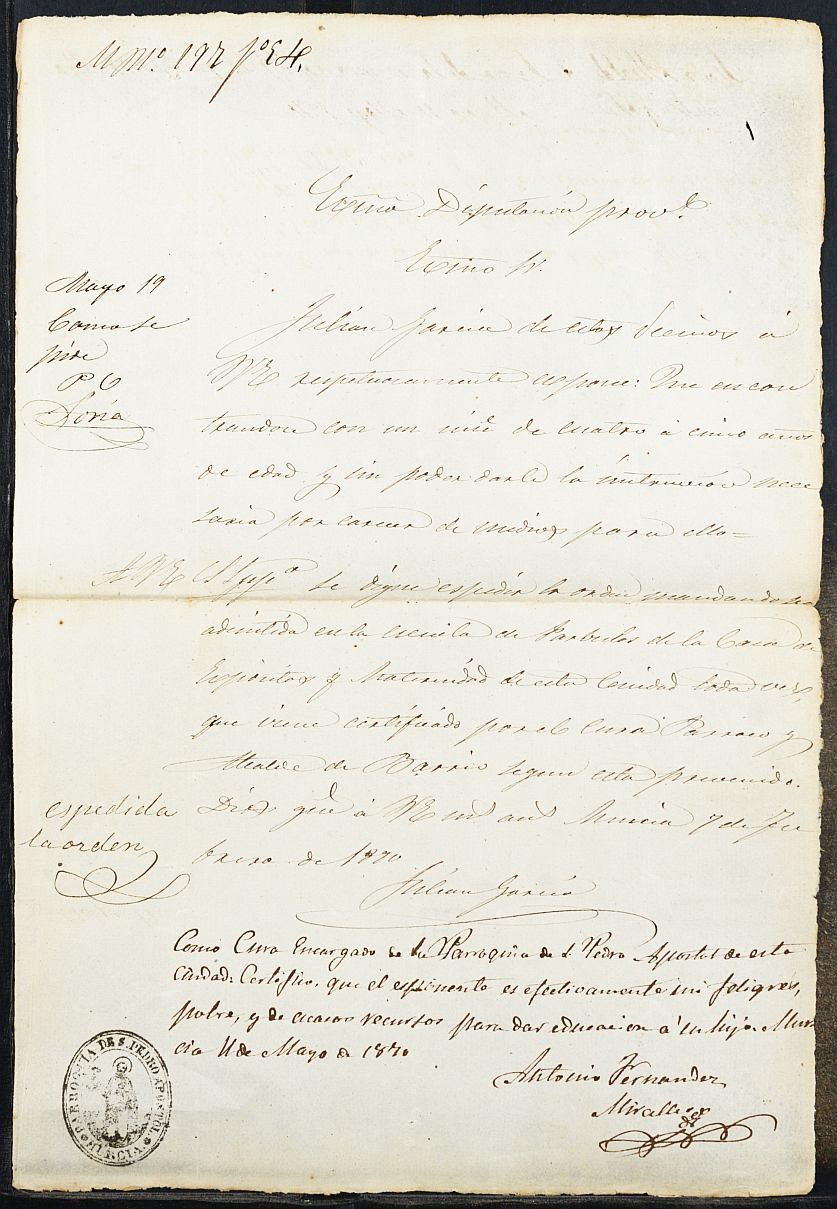 Exmã Diputación provl.
Exmo Sr.
Mayo 19
Como se
pide
P O
Soria
Julian Garcia de estos Vecinos á
VE respetuosamente espone: Que encon
trandose con un niño de cuatro á cinco años
de edad y sin poder darle la instruccion nece
saria por carecer de medios para ello=
A VE Suppca se digne espedir la orden mandando sea
admitida en la escuela de Parbulos de la Casa de
Espósitos y Maternidad de esta Ciudad toda vez,
que viene certificado por el Cura Parroco y
Alcalde de Barrio segun esta prevenido.
Dios gue á VE ms as Murcia 7 de Fe
brero de 1870
Julian Garcia
espedida
la orden
Como Cura Encargado de la Parroquia de S. Pedro Apostol de esta
ciudad: Certifico, que el esponente es efectivamente mi feligres,
pobre, y de escasos recursos para dar educacion á su hijo. Mur
cia 11 de Mayo de 1870
Antonio Fernandez
PARROQUIA DE S. PEDRO APOSTOL
MURCIA